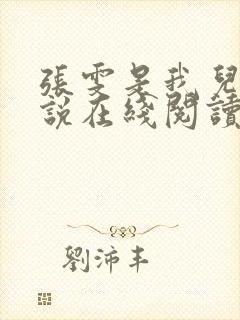 張雯是我兒
說在綫閱讀
劉沛丰